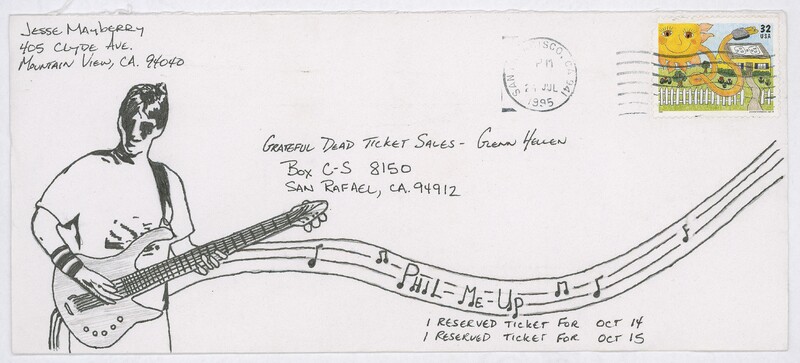 Jesse Mayberry
405 Clyde Ave.
Mountain View, CA. 94040
32
USA
CISCO, CA 941
PM
JUL
1995
Grateful Dead Ticket Sales - Glenn Hellen
Box C-S 8150
San Rafael, CA. 94912
Phil-Me-Up
1 Reserved Ticket for Oct 14
1 Reserved Ticket for Oct 15